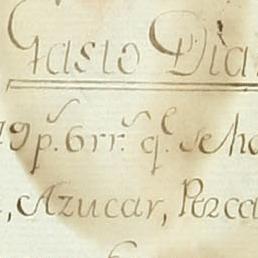 Gasto Dia
19 p.s 6 rr.s q.e se ha
, Azucar, Perca